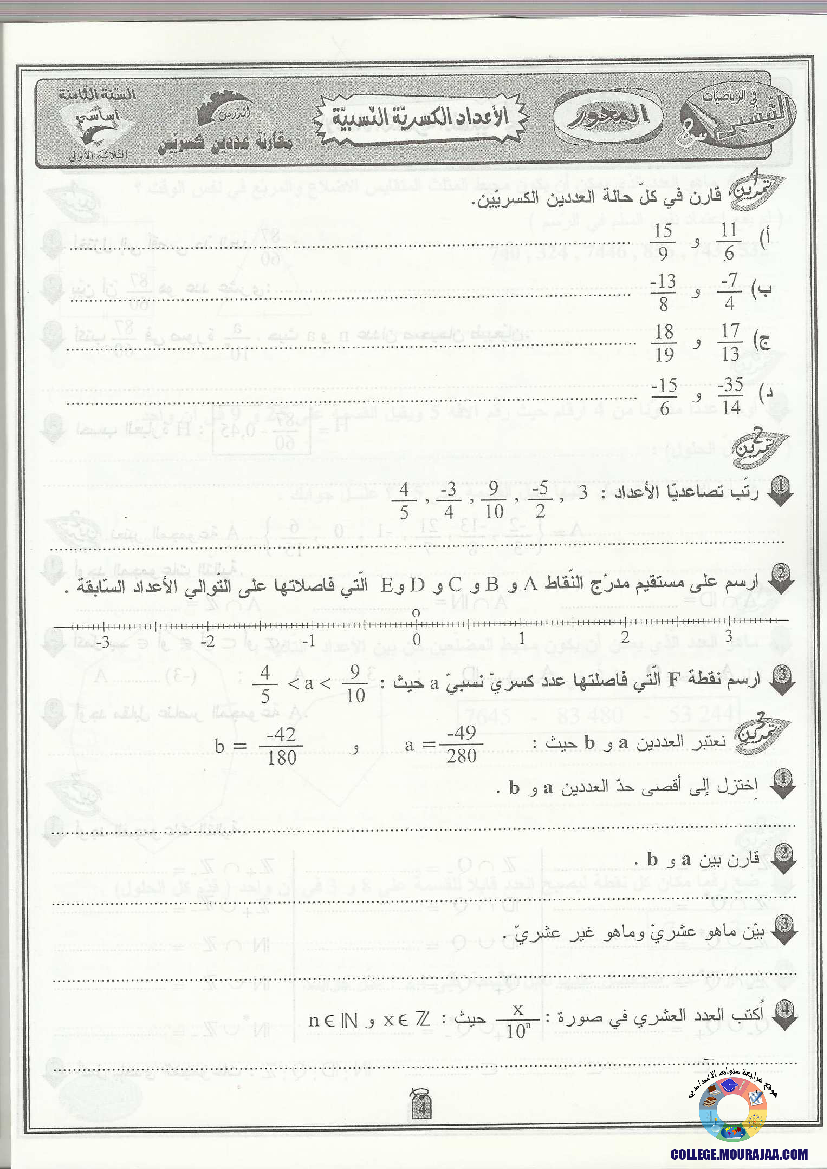 السنة الثامنة
أساسي
الثلاثي الأول
الدرس
مقارنة عددين كسريين
الأعداد الكسريّة النّسبيّة
المحور
في الرياضيات
تمرين 1 قارن في كلّ حالة العددين الكسريّين.
أ) 11/6 و 15/9
ب) -7/4 و -13/8
ج) 17/13 و 18/19
د) -35/14 و -15/6
تمرين 2
1 رتّب تصاعديّا الأعداد : 3 , -5/2 , 9/10 , -3/4 , 4/5
2 ارسم على مستقيم مدرّج النّقاط A و B و C و D و E الّتي فاصلاتها على التّوالي الأعداد السّابقة .
O
-3 -2 -1 0 1 2 3
3 ارسم نقطة F الّتي فاصلتها عدد كسريّ نسبيّ a حيث : 4/5 < a < 9/10
تمرين 3 نعتبر العددين a و b حيث : a = -49/280 و b = -42/180
1 اختزل إلى أقصى حدّ العددين a و b .
2 قارن بين a و b .
3 بيّن ماهو عشريّ وماهو غير عشريّ .
4 أكتب العدد العشري في صورة : x/10ⁿ حيث : x ∈ ℤ و n ∈ ℕ
4
COLLEGE.MOURAJAA.COM